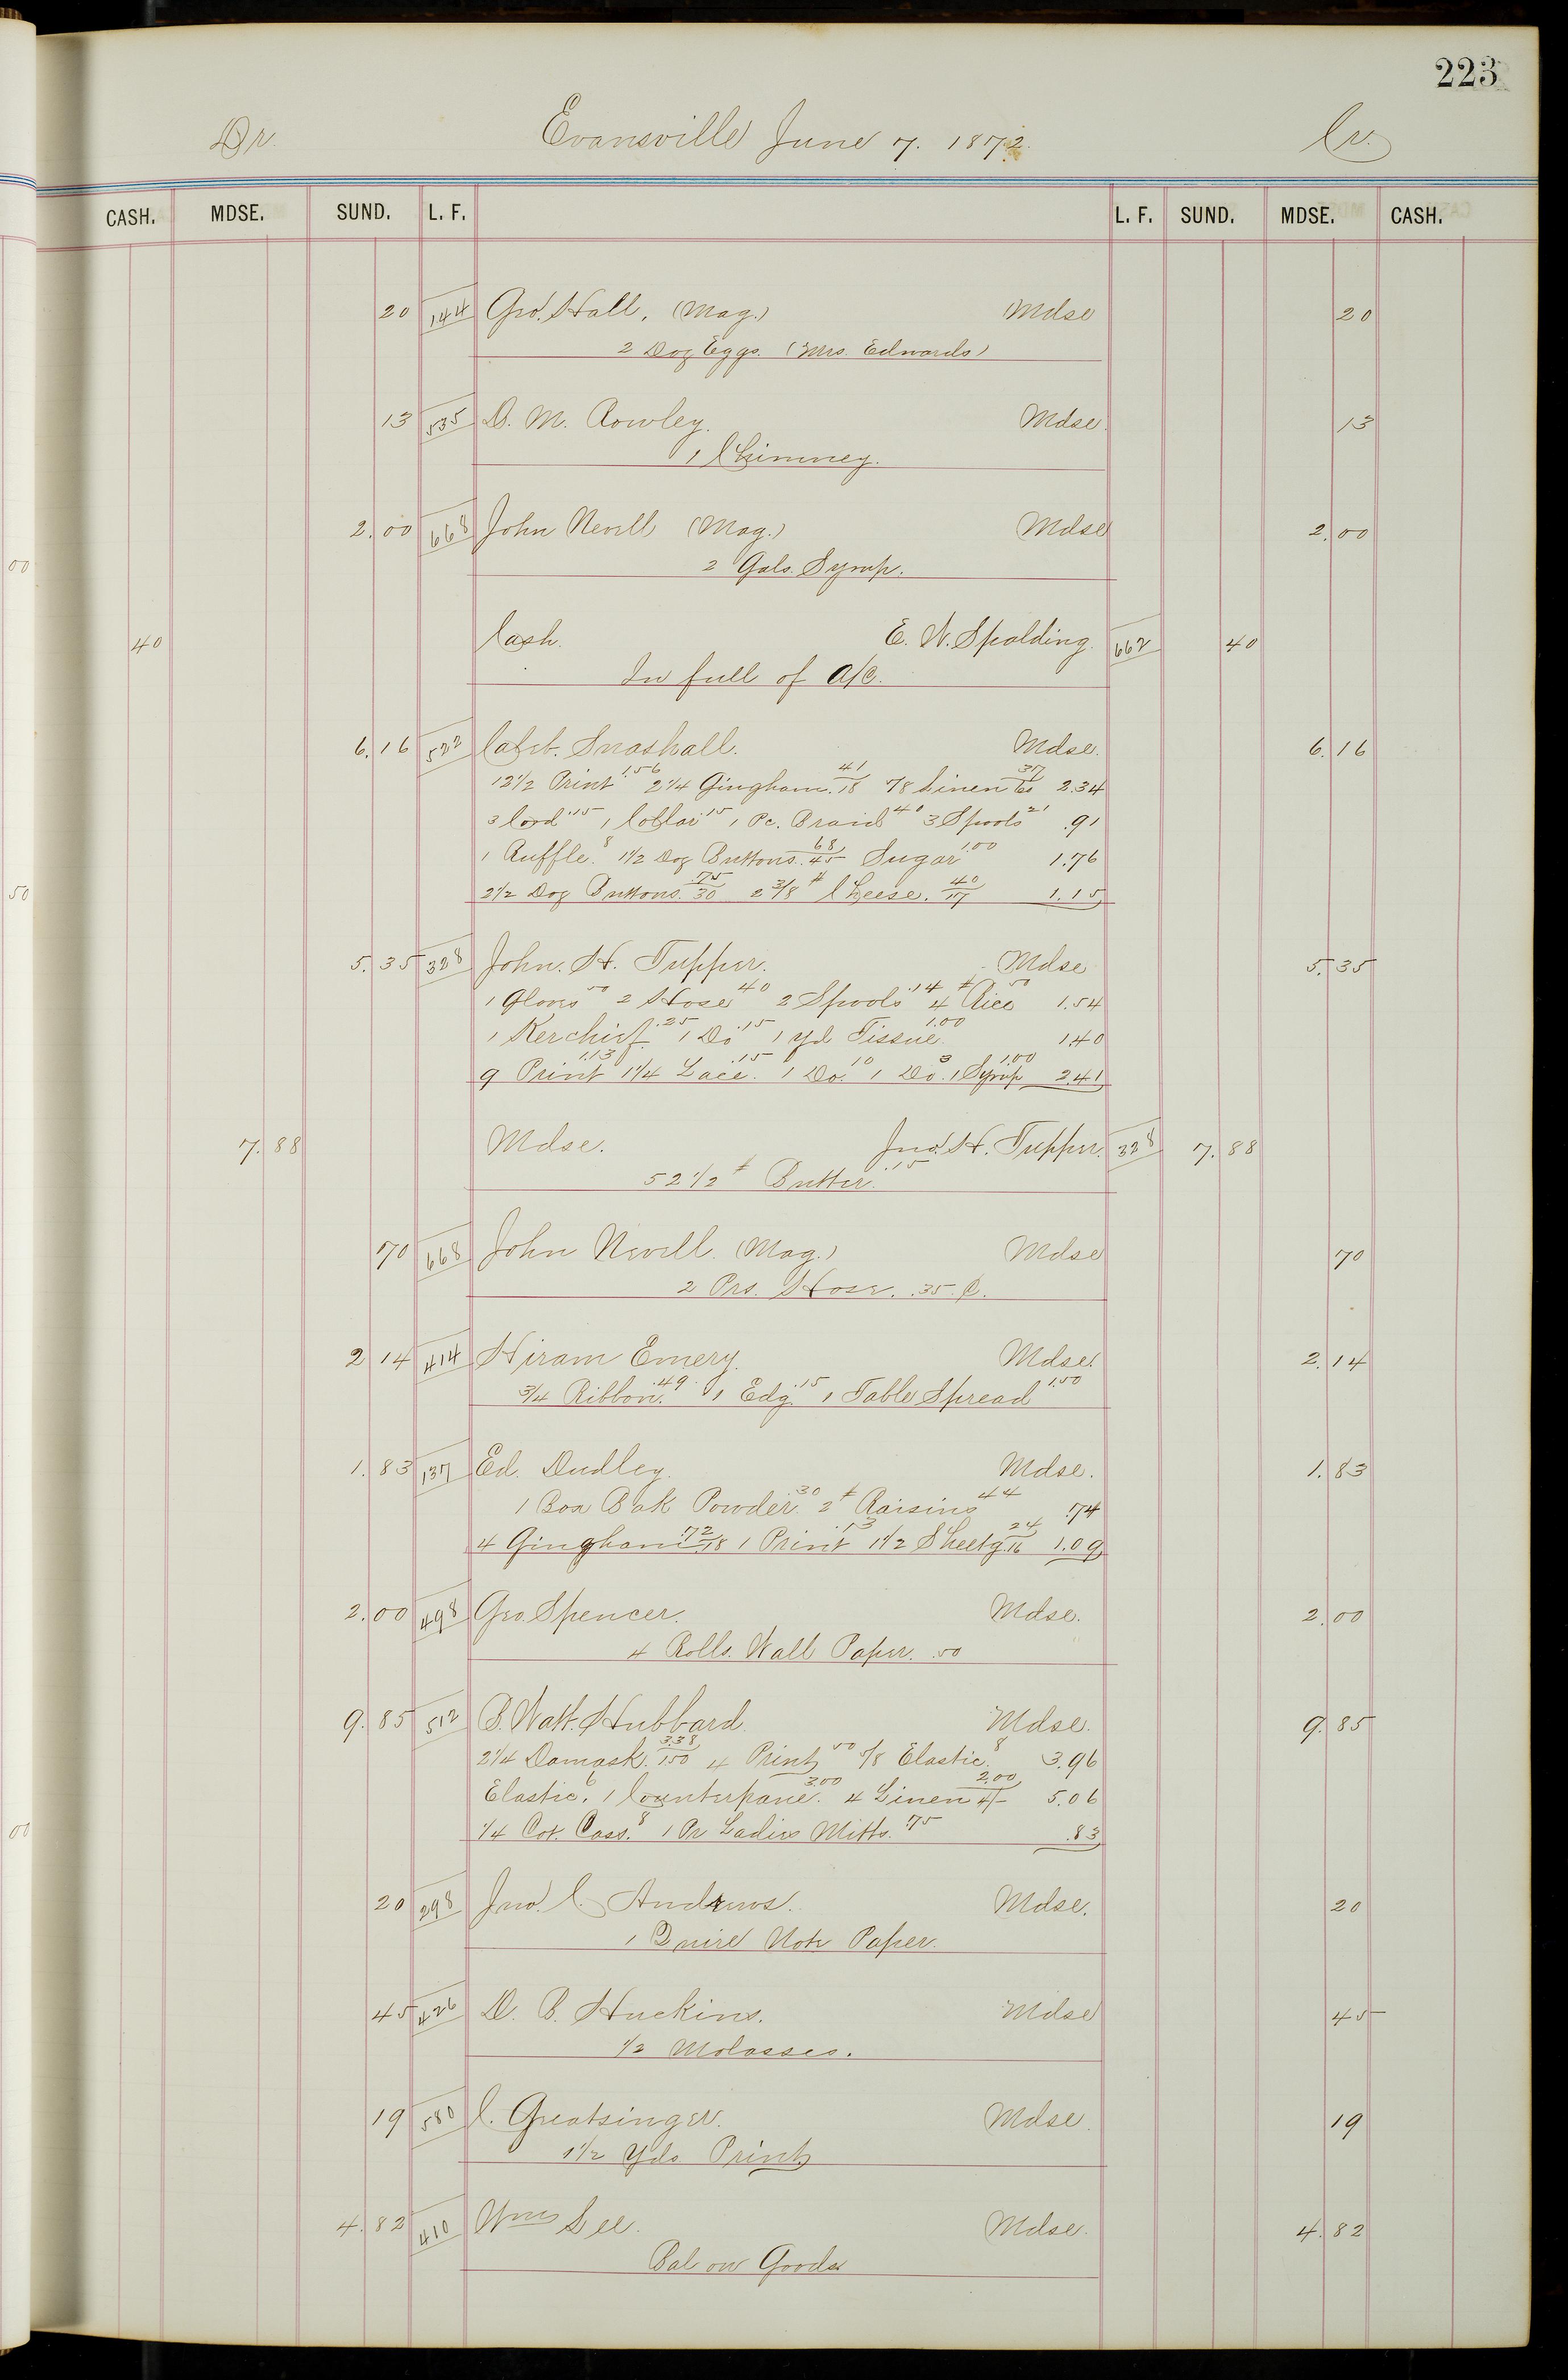 223
Dr. Evansville June 7. 1872. Cr.
CASH. MDSE. SUND. L. F. L. F. SUND. MDSE. CASH.
20 144 Geo. Hall, (Mag.) Mdse 20
2 Doz Eggs. (Mrs. Edwards)
13 535 D. M. Rowley. Mdse. 13
1 Chimney.
2.00 668 John Nevill (Mag.) Mdse 2.00
00
2 Gals. Syrup.
40 Cash. E. W. Spalding. 662 40
In full of A/C.
6.16 522 Caleb. Snashall. Mdse. 6.16
12 1/2 Print 1.56 2 1/4 Gingham. 41/18 7/8 Linen 37/ 2.34
3 Cord .15 1 Collar .15 1 Pc. Braid 40 3 Spools 21 .91
1 Ruffle. 8 1 1/2 Doz Buttons. 68/45 Sugar 1.00 1.76
50
2 1/2 Doz Buttons. .75/30 2 3/8 # Cheese. 40/17 1.15
5.35 328 John. H. Tupper. Mdse 5.35
1 Gloves 50 2 Hose 40 2 Spools .14 4 # Rice 50 1.54
1 Kerchief. .25 1 Do .15 1 yd Tissue 1.00 1.40
9 Print 1.13 1 1/4 Lace. .15 1 Do. 10 1 Do. 3 1 Syrup 1.00 2.41
7.88 Mdse. Jno. H. Tupper. 328 7.88
52 1/2 # Butter. .15
70 668 John Nevill. (Mag.) Mdse 70
2 Prs. Hose. .35. C.
2 14 414 Hiram Emery. Mdse. 2.14
3/4 Ribbon. .49 1 Edg. .15 1 Table Spread 1.50
1.83 137 Ed. Dudley. Mdse. 1.83
1 Box Bak Powder. .30 2 # Raisins 44 .74
4 Gingham .72/18 1 Print .13 1 1/2 Sheetg. 24/16 1.09
2.00 498 Geo. Spencer. Mdse. 2.00
4 Rolls. Wall Paper. .50
9.85 512 B. Watt. Hubbard. Mdse. 9.85
2 1/4 Damask. 3.38/150 4 Print 50 5/8 Elastic. 8 3.96
Elastic. 6 1 Counterpane. 3.00 4 Linen 2.00/4/- 5.06
00
1/4 Cot. Cass. 8 1 Pr Ladies Mitts. .75 .83
20 298 Jno. C. Andrews. Mdse. 20
1 Quire Note Paper.
45 426 D. B. Huckins. Mdse 45
1/2 Molasses.
19 580 C. Greatsinger. Mdse. 19
1 1/2 Yds Print
4.82 410 Wm Lee. Mdse. 4.82
Bal on Goods